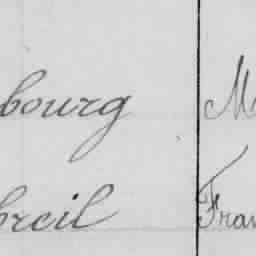 bourg M
breil Fran